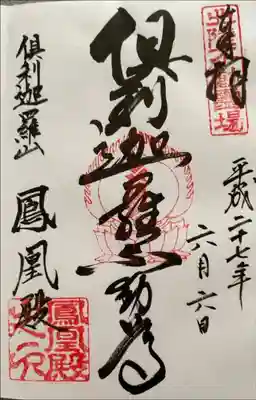 奉拝
平成二十七年
六月六日
俱利迦羅不動尊
俱利迦羅山
鳳凰殿
鳳凰殿